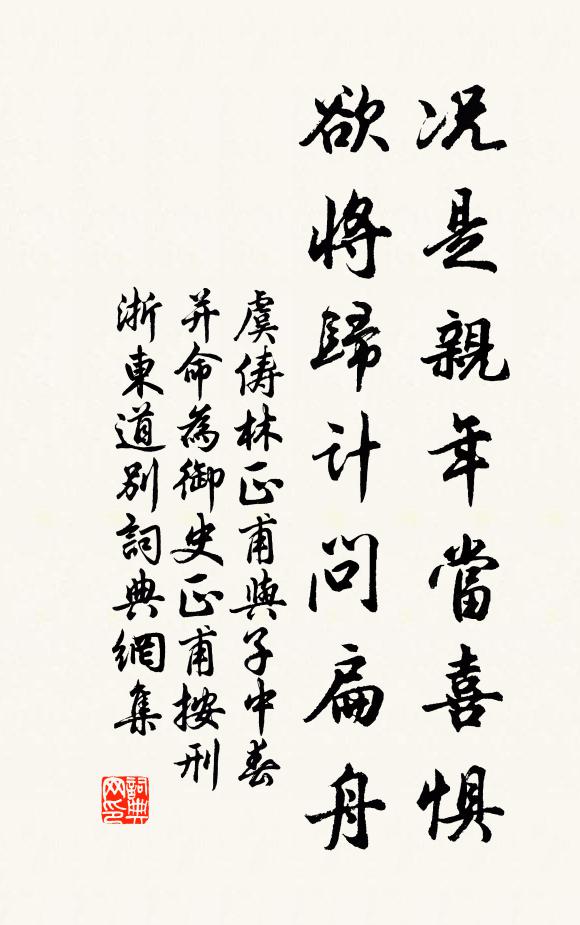 况是親年當喜惧
欲將歸计问扁舟
虞俦林正甫與子中春
并命為御史正甫按刑
浙東道别詞典網集
詞典网印